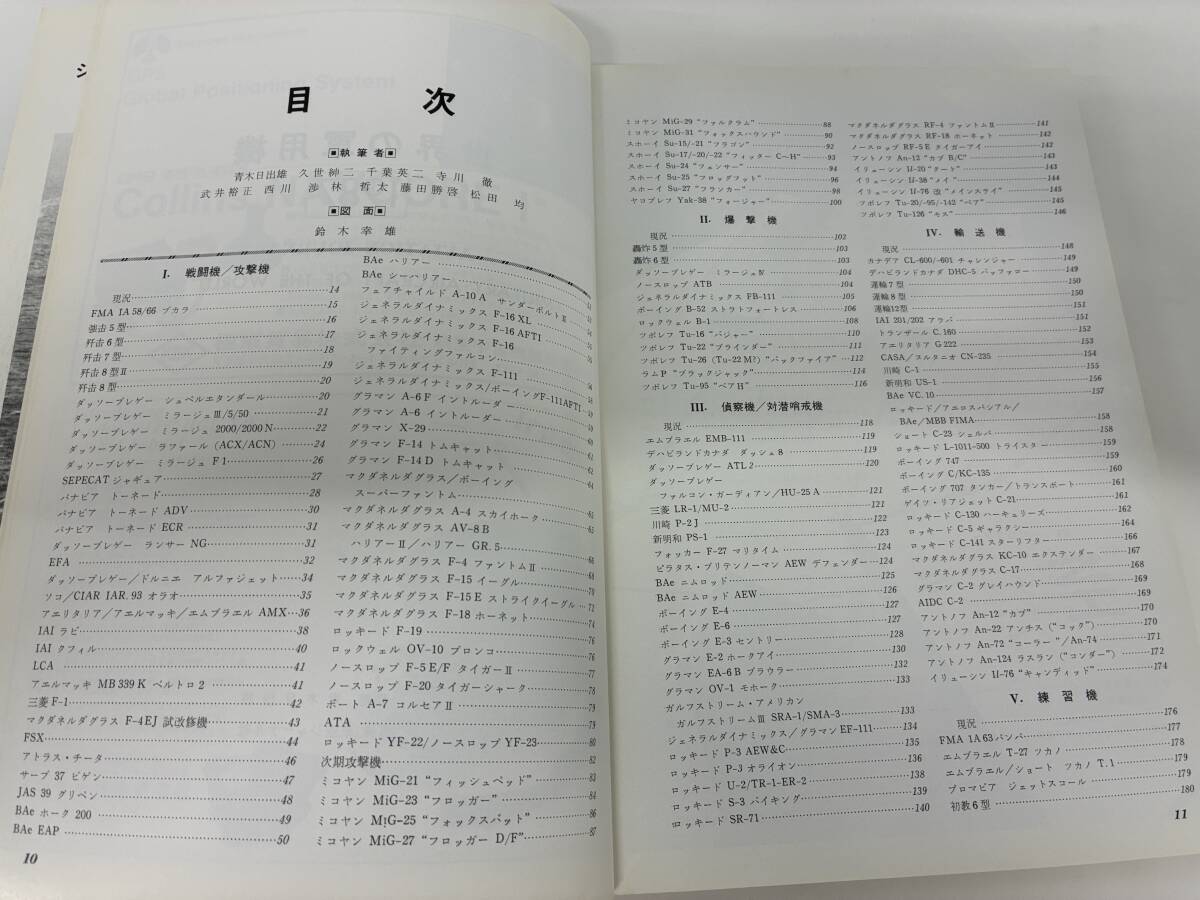 目次
■執筆者■
青木日出雄 久世紳二 千葉英二 寺川 徹
武井裕正 西川 渉 林 哲太 藤田勝啓 松田 均
■図面■
鈴木幸雄
I. 戦闘機/攻撃機
現況 14
FMA IA 58/66 プカラ 15
強击5型 16
歼击6型 17
歼击7型 18
歼击8型II 19
歼击8型 20
ダッソーブレゲー シュペルエタンダール 20
ダッソーブレゲー ミラージュIII/5/50 21
ダッソーブレゲー ミラージュ 2000/2000N 22
ダッソーブレゲー ラファール (ACX/ACN) 24
ダッソーブレゲー ミラージュ F1 26
SEPECAT ジャギュア 27
パナビア トーネード 28
パナビア トーネード ADV 30
パナビア トーネード ECR 31
ダッソーブレゲー ランサー NG 31
EFA 32
ダッソーブレゲー/ドルニエ アルファジェット 34
ソコ/CIAR IAR.93 オラオ 35
アエリタリア/アエルマッキ/エムブラエル AMX 36
IAI ラビ 38
IAI クフィル 40
LCA 41
アエルマッキ MB 339 K ベルトロ2 41
三菱 F-1 42
マクダネルダグラス F-4EJ 試改修機 43
FSX 44
アトラス・チータ 46
サーブ 37 ビゲン 47
JAS 39 グリペン 48
BAe ホーク 200 49
BAe EAP 50
10
BAe ハリアー
BAe シーハリアー
フェアチャイルド A-10A サンダーボルトII
ジェネラルダイナミックス F-16 XL
ジェネラルダイナミックス F-16 AFTI
ジェネラルダイナミックス F-16
ファイティングファルコン
ジェネラルダイナミックス F-111
ジェネラルダイナミックス/ボーイングF-111AFTI
グラマン A-6 F イントルーダー
グラマン A-6 イントルーダー
グラマン X-29
グラマン F-14 トムキャット
グラマン F-14 D トムキャット
マクダネルダグラス/ボーイング
スーパーファントム
マクダネルダグラス A-4 スカイホーク
マクダネルダグラス AV-8 B
ハリアーII/ハリアー GR.5
マクダネルダグラス F-4 ファントムII
マクダネルダグラス F-15 イーグル
マクダネルダグラス F-15 E ストライクイーグル 72
マクダネルダグラス F-18 ホーネット 74
ロッキード F-19 76
ロックウェル OV-10 ブロンコ 76
ノースロップ F-5 E/F タイガーII 77
ノースロップ F-20 タイガーシャーク 78
ボート A-7 コルセアII 79
ATA 79
ロッキード YF-22/ノースロップ YF-23 80
次期攻撃機 82
ミコヤン MiG-21 “フィッシュベッド” 83
ミコヤン MiG-23 “フロッガー” 84
ミコヤン MiG-25 “フォックスバット” 86
ミコヤン MiG-27 “フロッガー D/F” 87
ミコヤン MiG-29 “ファルクラム” 88
ミコヤン MiG-31 “フォックスハウンド” 90
スホーイ Su-15/-21 “フラゴン” 92
スホーイ Su-17/-20/-22 “フィッター C〜H” 93
スホーイ Su-24 “フェンサー” 94
スホーイ Su-25 “フロッグフット” 96
スホーイ Su-27 “フランカー” 98
ヤコブレフ Yak-38 “フォージャー” 100
II. 爆撃機
現況 102
轟炸5型 103
轟炸6型 103
ダッソーブレゲー ミラージュIV 104
ノースロップ ATB 104
ジェネラルダイナミックス FB-111 105
ボーイング B-52 ストラトフォートレス 106
ロックウェル B-1 108
ツポレフ Tu-16 “バジャー” 110
ツポレフ Tu-22 “ブラインダー” 111
ツポレフ Tu-26 (Tu-22 M?) “バックファイア” 112
ラムP “ブラックジャック” 114
ツポレフ Tu-95 “ベアH” 116
III. 偵察機/対潜哨戒機
現況 118
エムブラエル EMB-111 119
デハビランドカナダ ダッシュ8 119
ダッソーブレゲー ATL 2 120
ダッソーブレゲー
ファルコン・ガーディアン/HU-25 A 121
三菱 LR-1/MU-2 121
川崎 P-2 J 122
新明和 PS-1 123
フォッカー F-27 マリタイム 124
ピラタス・ブリテンノーマン AEW デフェンダー 124
BAe ニムロッド 125
BAe ニムロッド AEW 126
ボーイング E-4 127
ボーイング E-6 127
ボーイング E-3 セントリー 128
グラマン E-2 ホークアイ 130
グラマン EA-6 B プラウラー 132
グラマン OV-1 モホーク 133
ガルフストリーム・アメリカン
ガルフストリームIII SRA-1/SMA-3 133
ジェネラルダイナミックス/グラマン EF-111 134
ロッキード P-3 AEW&C 135
ロッキード P-3 オライオン 136
ロッキード U-2/TR-1・ER-2 138
ロッキード S-3 バイキング 139
ロッキード SR-71 140
マクダネルダグラス RF-4 ファントムII 141
マクダネルダグラス RF-18 ホーネット 142
ノースロップ RF-5 E タイガーアイ 142
アントノフ An-12 “カブ B/C” 143
イリューシン Il-20 “クート” 143
イリューシン Il-38 “メイ” 144
イリューシン Il-76 改 “メインステイ” 145
ツポレフ Tu-20/-95/-142 “ベア” 145
ツポレフ Tu-126 “モス” 146
IV. 輸送機
現況 148
カナデア CL-600/-601 チャレンジャー 149
デハビランドカナダ DHC-5 バッファロー 149
運輸7型 150
運輸8型 150
運輸12型 151
IAI 201/202 アラバ 151
トランザール C.160 152
アエリタリア G 222 153
CASA/ヌルタニオ CN-235 154
川崎 C-1 155
新明和 US-1 156
BAe VC.10 157
ロッキード/アエロスパシアル/
BAe/MBB FIMA 158
ショート C-23 シェルパ 158
ロッキード L-1011-500 トライスター 159
ボーイング 747 159
ボーイング C/KC-135 160
ボーイング 707 タンカー/トランスポート 161
ゲイツ・リアジェット C-21 161
ロッキード C-130 ハーキュリーズ 162
ロッキード C-5 ギャラクシー 164
ロッキード C-141 スターリフター 166
マクダネルダグラス KC-10 エクステンダー 167
マクダネルダグラス C-17 168
グラマン C-2 グレイハウンド 169
AIDC C-2 169
アントノフ An-12 “カブ” 170
アントノフ An-22 アンチス (“コック”) 170
アントノフ An-72 “コーラー”/An-74 171
アントノフ An-124 ラスラン (“コンダー”) 172
イリューシン Il-76 “キャンディッド” 174
V. 練習機
現況 176
FMA 1A 63 パンパ 177
エムブラエル T-27 ツカノ 178
エムブラエル/ショート ツカノ T.1 179
プロマビア ジェットスコール 179
初教6型 180
11